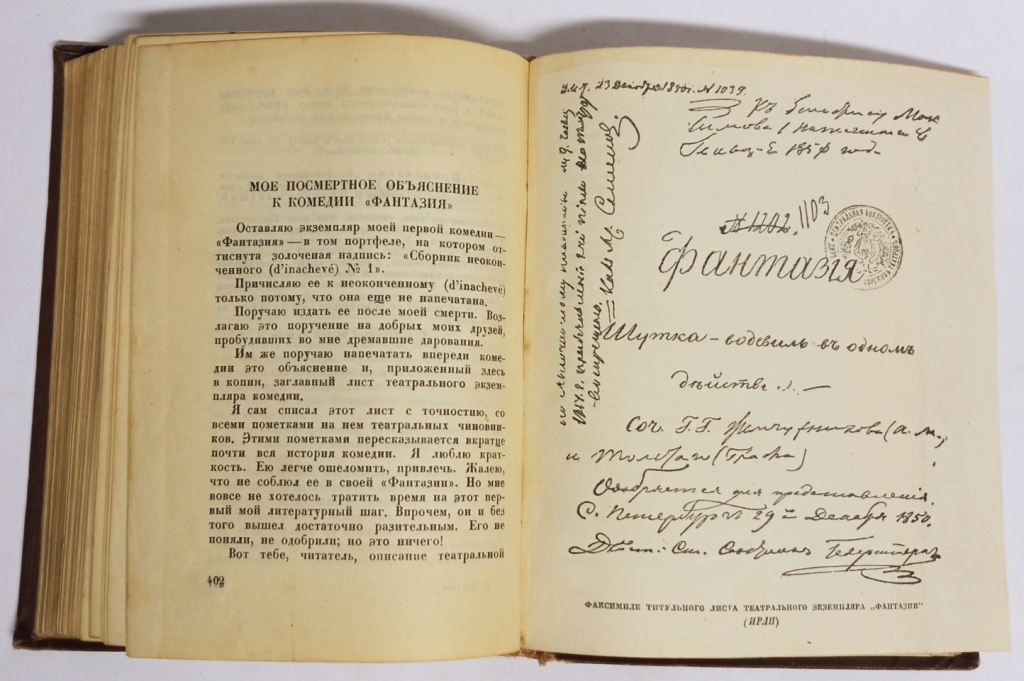 МОЕ ПОСМЕРТНОЕ ОБЪЯСНЕНИЕ
К КОМЕДИИ «ФАНТАЗИЯ»
Оставляю экземпляр моей первой комедии—
«Фантазия»—в том портфеле, на котором от-
тиснута золоченая надпись: «Сборник неокон-
ченного (d'inachevé) № 1».
Причисляю ее к неоконченному (d'inachevé)
только потому, что она еще не напечатана.
Поручаю издать ее после моей смерти. Воз-
лагаю это поручение на добрых моих друзей,
пробудивших во мне дремавшие дарования.
Им же поручаю напечатать впереди коме-
дии это объяснение и, приложенный здесь
в копии, заглавный лист театрального экзем-
пляра комедии.
Я сам списал этот лист с точностию, со
всеми пометками на нем театральных чиновни-
ков. Этими пометками пересказывается вкратце
почти вся история комедии. Я люблю крат-
кость. Ею легче ошеломить, привлечь. Жалею,
что не соблюл ее в своей «Фантазии». Но мне
вовсе не хотелось тратить время на этот пер-
вый мой литературный шаг. Впрочем, он и без
того вышел достаточно разительным. Его не
поняли, не одобрили; но это ничего!
Вот тебе, читатель, описание театральной
402
23 Декабря 1850г. N 1039.
Къ бенефису Мак
симова 1 назначается
1103
Фантазія
Шутка-водевиль въ одномъ
дѣйствіи.
Соч. Г.Г. Жемчужникова (А. М.)
и Толстаго (Графа)
Одобряется для представленія.
С. Петербургъ 29й Декабря 1850.
ФАКСИМИЛЕ ТИТУЛЬНОГО ЛИСТА ТЕАТРАЛЬНОГО ЭКЗЕМПЛЯРА „ФАНТАЗИИ"
(ИРЛИ)